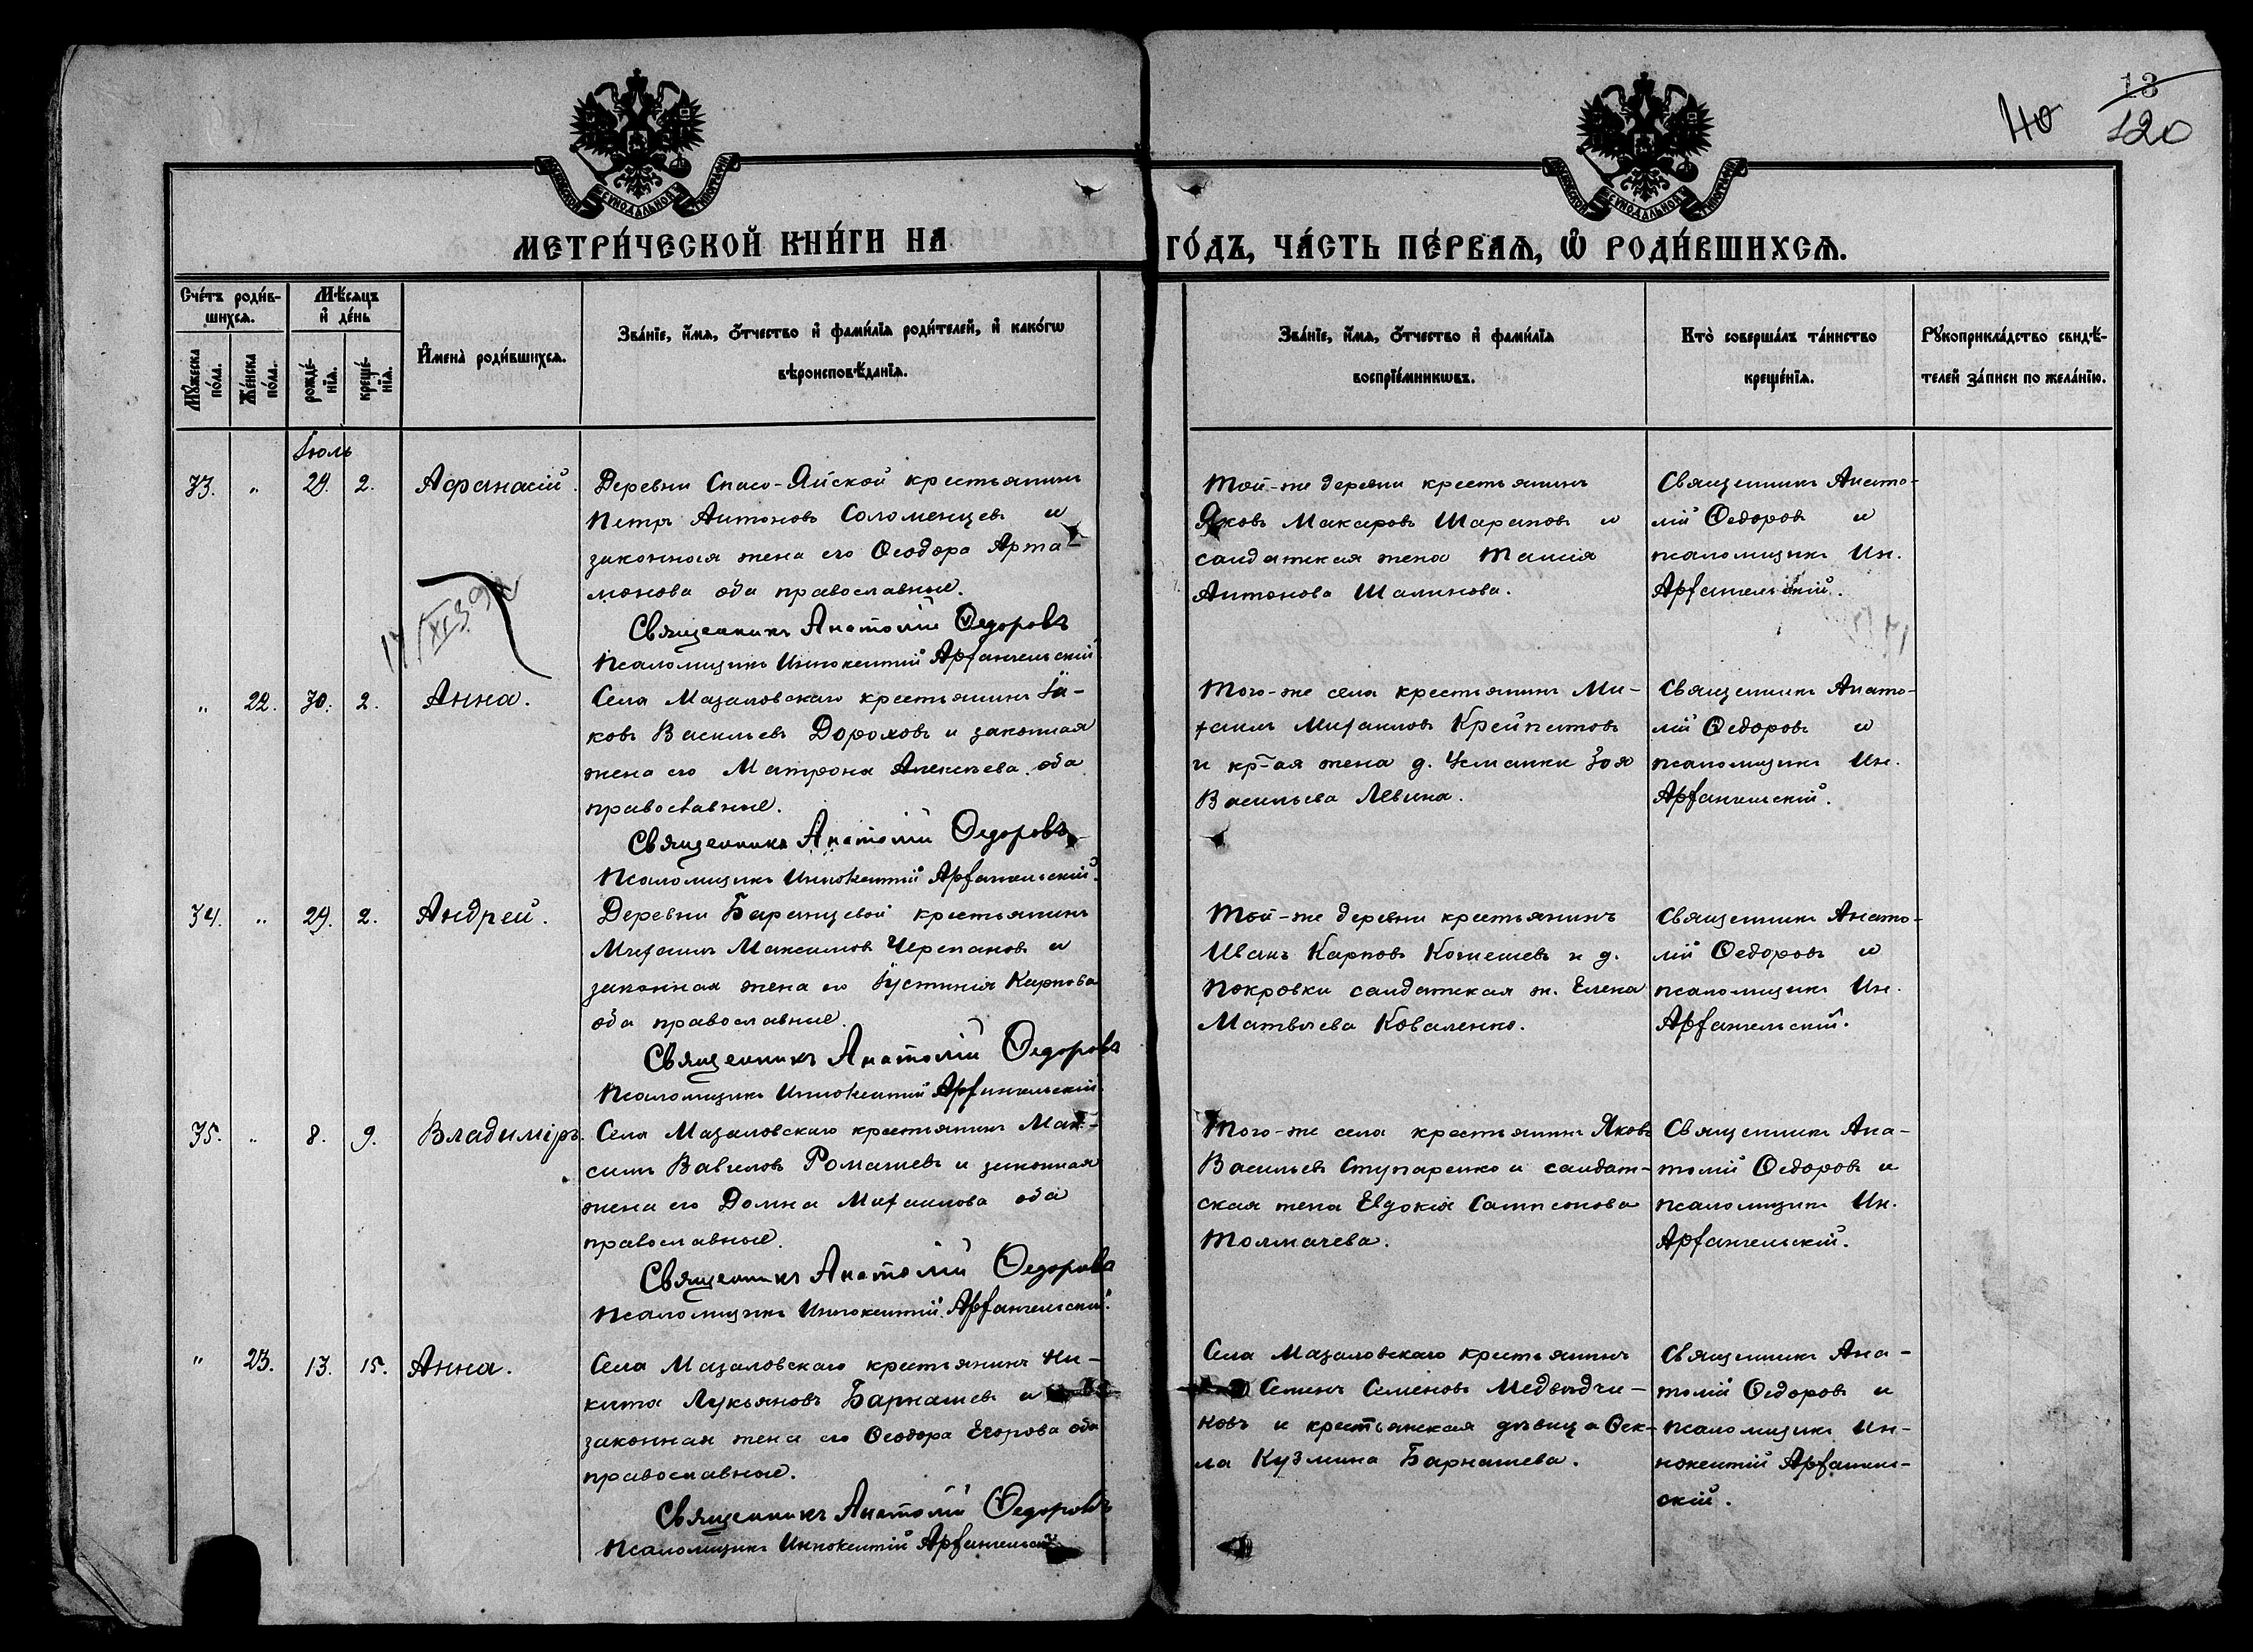 13
40
120
МЕТРИ́ЧЕСКОЙ КНИ́ГИ НА
ГО́ДЪ, ЧА́СТЬ ПЕ́РВАѦ, Ѡ҆ РОДИ́ВШИХСѦ.
Сче́тъ роди́в-
шихсѧ.
Мꙋ́жеска
по́ла.
Же́нска
по́ла.
Мѣ́сѧцъ
и҆ де́нь
рожде́-
нїѧ.
креще́-
нїѧ.
И҆мена̀ роди́вшихсѧ.
Зва́нїе, и҆́мѧ, ѻ҆́тчество и҆ фами́лїѧ роди́телей, и҆ како́гѡ
вѣроисповѣ́данїѧ.
Зва́нїе, и҆́мѧ, ѻ҆́тчество и҆ фами́лїѧ
воспрїе́мникѡвъ.
Кто̀ соверша́лъ та́инство
креще́нїѧ.
Рꙋкоприкла́дство свидѣ́-
телей за́писи по жела́нїю.
Іюль
33. „ 29. 2. Афанасій.
Деревни Спасо-Яйской крестьянинъ
Петръ Антоновъ Соломенцевъ и
законная жена его Ѳеодора Арта-
монова оба православные.
Священникъ Анатолій Ѳедоровъ
Псаломщикъ Иннокентій Архангельскій
Той-же деревни крестьянинъ
Яковъ Макаровъ Шараповъ и
солдатская жена Таисія
Антонова Шалинова.
Священникъ Анато-
лій Ѳедоровъ и
псаломщикъ Ин.
Архангельскій.
„ 22. 30. 2. Анна.
Села Мазаловскаго крестьянинъ Іа-
ковъ Васильевъ Дороховъ и законная
жена его Матрона Алексѣева. оба
православные.
Священникъ Анатолій Ѳедоровъ
Псаломщикъ Иннокентій Архангельскій.
Того-же села крестьянинъ Ми-
хаилъ Михаиловъ Крейпитовъ
и кр-ая жена д. Усманки Зоя
Васильева Левина.
Священникъ Анато-
лій Ѳедоровъ и
псаломщикъ Ин.
Архангельскій.
34. „ 29. 2. Андрей.
Деревни Баранцевой крестьянинъ
Михаилъ Максимовъ Черепановъ и
законная жена его Іустинія Карпова
оба православные.
Священникъ Анатолій Ѳедоровъ
Псаломщикъ Иннокентій Архангельскій.
Той-же деревни крестьянинъ
Иванъ Карповъ Кошелевъ и д.
Покровки солдатская ж. Елена
Матвѣева Коваленко.
Священникъ Анато-
лій Ѳедоровъ и
псаломщикъ Ин.
Архангельскій.
35. „ 8. 9. Владиміръ.
Села Мазаловскаго крестьянинъ Мак-
симъ Вавиловъ Ромашевъ и законная
жена его Домна Михаилова оба
православные.
Священникъ Анатолій Ѳедоровъ
Псаломщикъ Иннокентій Архангельскій.
Того-же села крестьянинъ Яковъ
Васильевъ Ступаренко и солдат-
ская жена Евдокія Сампсонова
Толмачева.
Священникъ Ана-
толій Ѳедоровъ и
псаломщикъ Ин.
Архангельскій.
„ 23. 13. 15. Анна.
Села Мазаловскаго крестьянинъ Ни-
кита Лукьяновъ Барнашевъ и
законная жена его Ѳеодора Егорова оба
православные.
Священникъ Анатолій Ѳедоровъ
Псаломщикъ Иннокентій Архангельскій
Села Мазаловскаго крестьянинъ
Семенъ Семеновъ Медвѣдчи-
ковъ и крестьянская дѣвица Ѳек-
ла Кузмина Барнашева.
Священникъ Ана-
толій Ѳедоровъ и
псаломщикъ Ин-
нокентій Архангель-
скій.